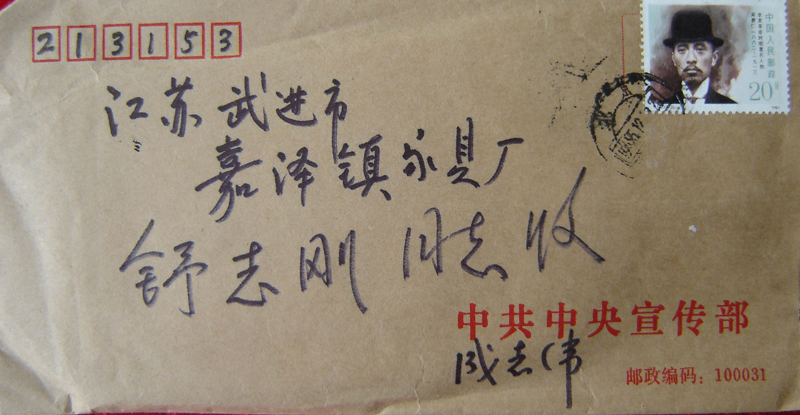 213153
中国人民邮政
20分
江苏武进市
嘉泽镇永具厂
舒志刚同志收
中共中央宣传部
成志伟
邮政编码：100031